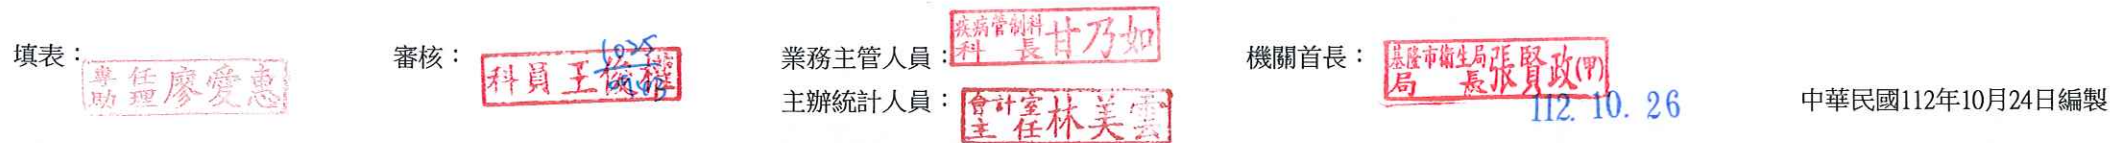 填表：
專任
助理廖愛惠
審核：
科員王
1025
業務主管人員：
疾病管制科
科長甘乃如
主辦統計人員：
會計室
主任林美雲
機關首長：
基隆市衛生局
局長張賢政(甲)
112.10.26
中華民國112年10月24日編製